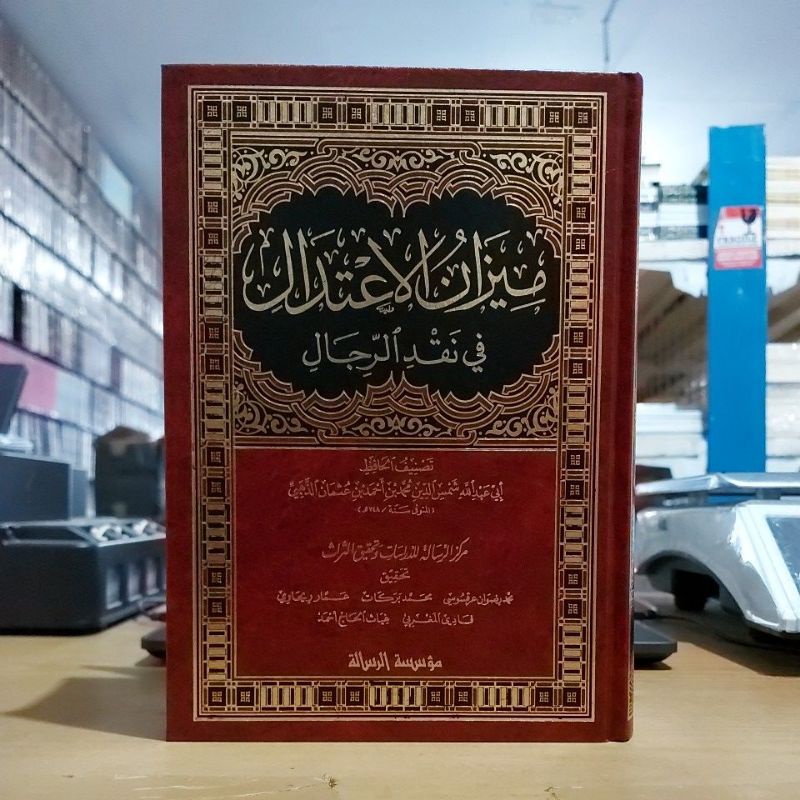 مِيزَانُ الاِعْتِدَالِ
فِي نَقْدِ الرِّجَالِ
تَصْنِيفُ الحَافِظِ
أَبِي عَبْدِ اللهِ شَمْسِ الدِّينِ مُحَمَّد بْن أَحْمَد بْن عُثْمَان الذَّهَبِيِّ
(المتوفى سنة / ٧٤٨هـ)
مركز الرسالة للدراسات وتحقيق التراث
تحقيق
محمد رضوان عرقسوسي محمد بركات عمار ريحاوي
فادي المغربي غياث الحاج أحمد
مؤسسة الرسالة
FRAGILE